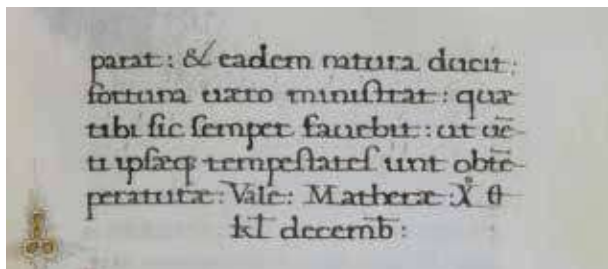 parat: & eadem natura ducit:
fortuna uæro miniſtrat: quæ
tibi ſic ſemper fauebit: ut uē-
ti ipſæq tempeſtateſ ſint obtē-
peraturæ: Vale: Matheræ:
kl̄ decemb̄: